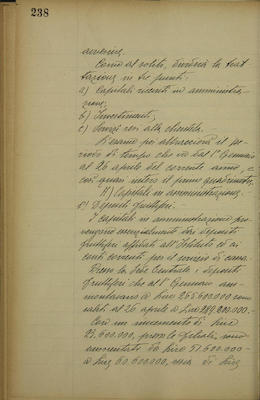 238
avvenire.
Come al solito, dividerà la trat
tazione in tre punti:
a) Capitali ricevuti in amministra-
zione;
b) Investimenti;
c) Servizi resi alla clientela.
Desame poi abbraccerà il pe-
riodo di tempo che va dal 1° Gennaio
al 26 aprile del corrente anno, e
così quasi intero il primo quadrimestre.
A) Capitali in amministrazione.
1°) Depositi fruttiferi.
I capitali in amministrazione pro-
vengono essenzialmente dai depositi
fruttiferi affidati all'Istituto ed ai
conti correnti per il servizio di cassa.
Presso la Sede Centrale i depositi
fruttiferi che al 1° Gennaio am-
montavano a lire 265.600.000 sono
saliti al 26 aprile a lire 289.200.000.-
Con un incremento di lire
23.600.000, presso le filiali, sono
aumentati da lire 51.600.000-
a lire 60.600.000, ossia di lire